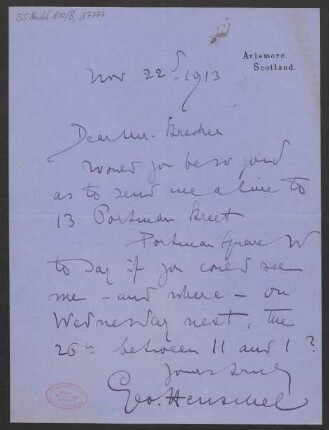 55 Nachl 100/B, 17777
Aviemore.
Scotland.
Nov 22d 1913
Dear Mr. Brecher
Would you be so good
as to send me a line to
13 Portman Street
Portman Square W
to day if you could see
me - and where - on
Wednesday next, the
26th between 11 and 1?
Yours truly
Geo. Henschel